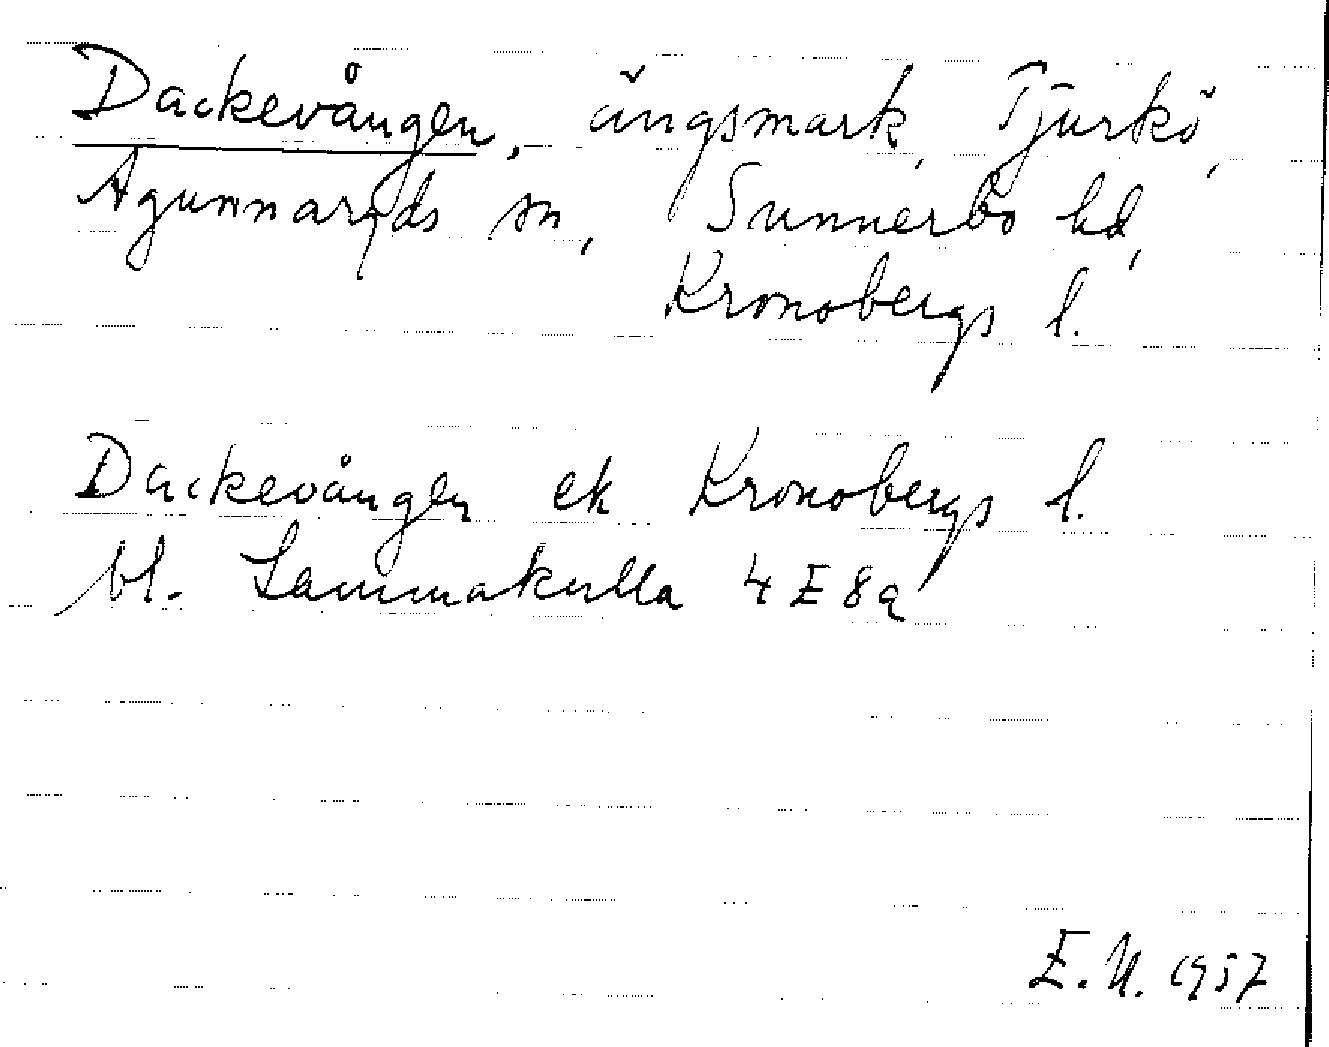 Dackevången, ängsmark, Tjurkö,
Agunnaryds sn, Sunnerbo hd,
Kronobergs l.
Dackevången ek Kronobergs l.
bl. Lammakulla 4 E 8 a
E.U. 1957